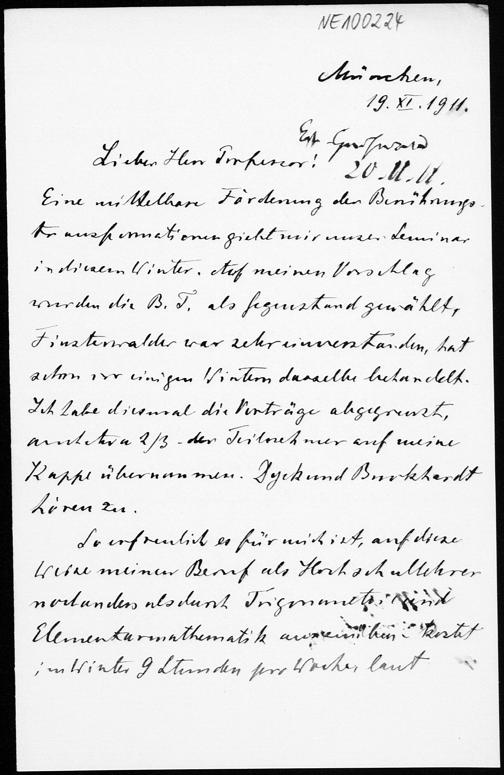 NE100224
München,
19. XI. 1911.
Lieber Herr Professor!
20. 11. 11.
Eine mittelbare Förderung der Berührungs-
transformationen giebt mir unser Seminar
in diesem Winter. Auf meinen Vorschlag
wurden die B. T. als Gegenstand gewählt,
Finsterwalder war sehr einverstanden, hat
schon vor einigen Wintern dasselbe behandelt.
Ich habe diesmal die Vorträge abgegrenzt,
auch etwa 2/3 der Teilnehmer auf meine
Kappe übernommen. Dyck und Burkhardt
hören zu.
So erfreulich es für mich ist, auf diese
Weise meinen Beruf als Hochschullehrer
noch anders als durch Trigonometrie und
Elementarmathematik auszuüben kostet
im Winter 9 Stunden pro Woche, laut